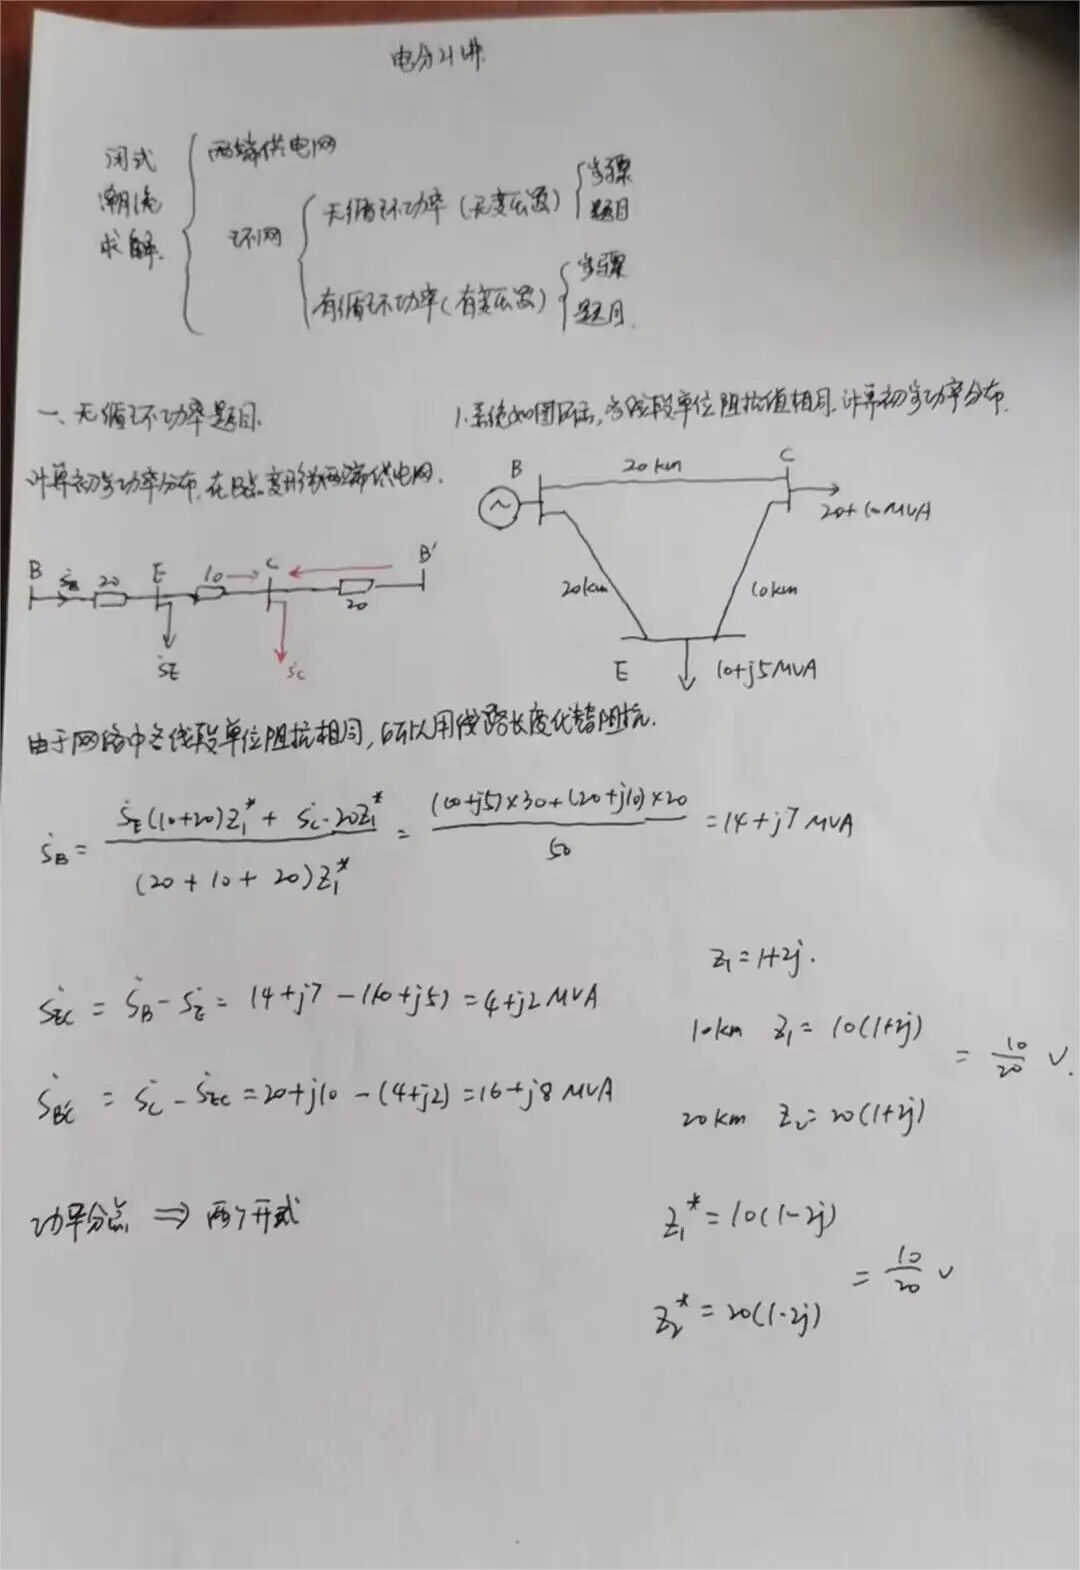 电分21讲
闭式潮流求解
两端供电网
环网
无循环功率(无变压器)
步骤
题目
有循环功率(有变压器)
步骤
题目.
一、无循环功率题目.
1.系统如图所示,各线段单位阻抗值相同.计算初步功率分布.
计算初步功率分布,在B点变形为两端供电网.
B 20km C
20+10MVA
20km 10km
E 10+j5MVA
B 20 E 10 C 20 B'
ṠE ṠC
由于网络中各线段单位阻抗相同,所以用线路长度代替阻抗.
ṠB = (ṠE(10+20)Z1* + ṠC·20Z1*) / ((20+10+20)Z1*) = ((10+j5)×30+(20+j10)×20) / 50 = 14+j7 MVA
Z1=1+2j.
ṠEC = ṠB-ṠE = 14+j7-(10+j5)=4+j2 MVA
10km Z1= 10(1+2j)
= 10/20 √.
20km Z2= 20(1+2j)
ṠB'C = ṠC-ṠEC =20+j10-(4+j2)=16+j8 MVA
功率分点 ⇒ 两个开式
Z1*=10(1-2j)
= 10/20 √
Z2*=20(1-2j)